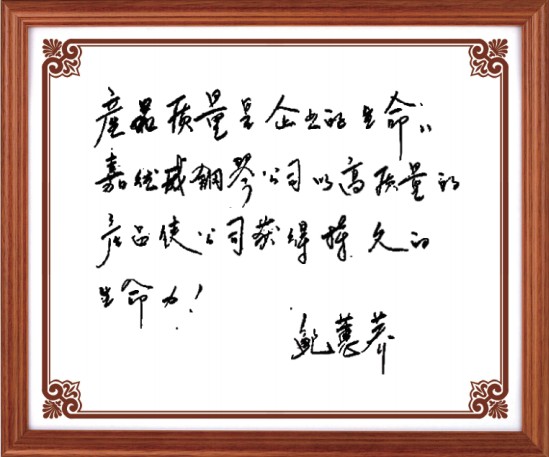 産品质量是企业的生命,,
嘉德威钢琴公司以高质量的
产品使公司获得持久的
生命力!
鲍蕙荞